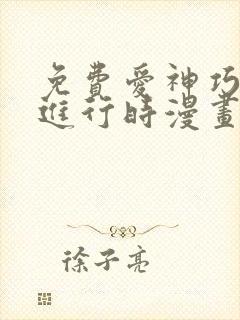 免費愛神巧
進行時漫畫
徐子亮